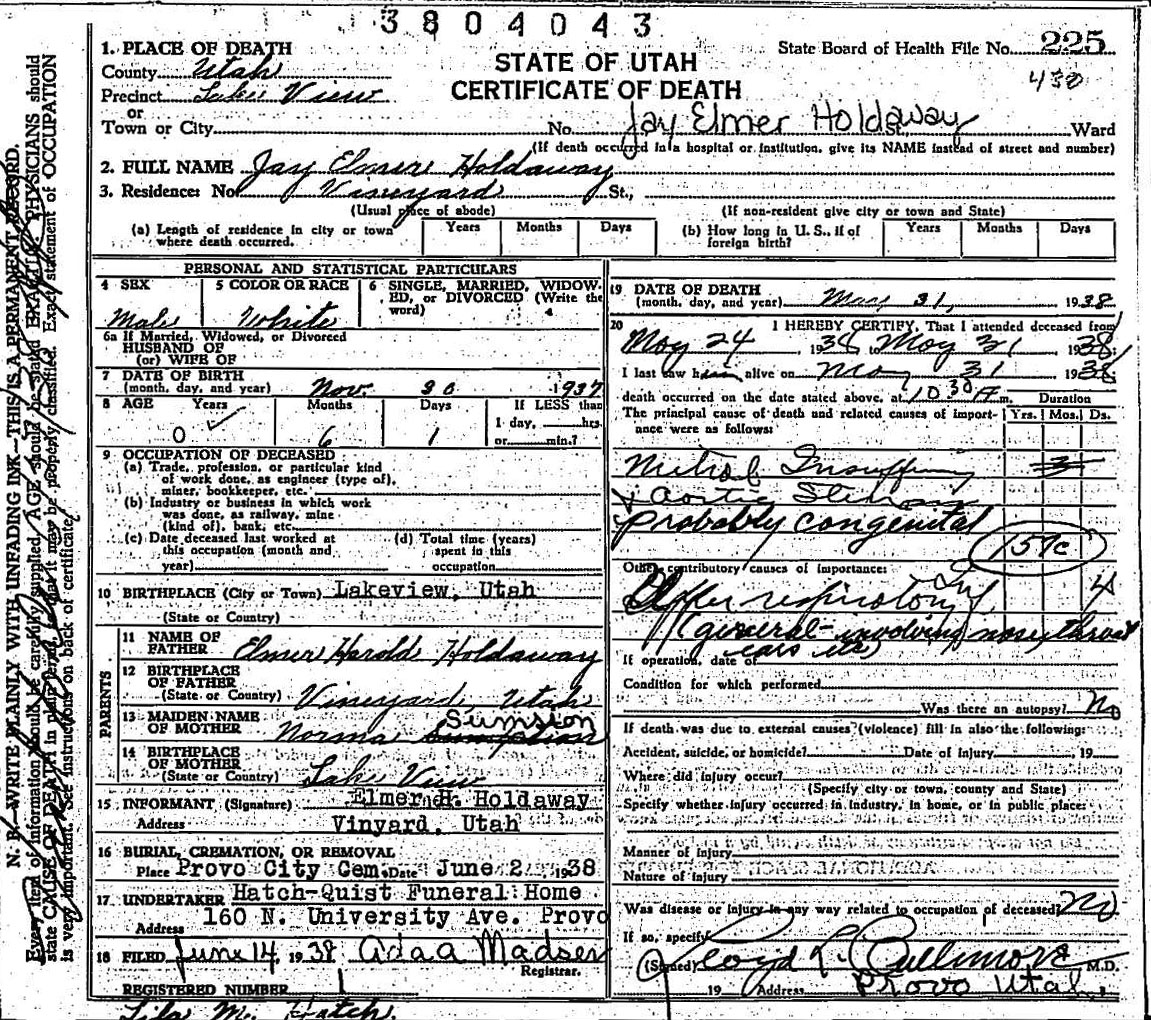 3804043
1. PLACE OF DEATH
County Utah
Precinct Lake View
or
Town or City
STATE OF UTAH
CERTIFICATE OF DEATH
State Board of Health File No. 225
430
No. Jay Elmer Holdaway St. Ward
(If death occurred in a hospital or institution, give its NAME instead of street and number)
2. FULL NAME Jay Elmer Holdaway
3. Residence: No. Vineyard St.,
(Usual place of abode)
(If non-resident give city or town and State)
(a) Length of residence in city or town where death occurred.
Years Months Days
(b) How long in U. S., if of foreign birth?
Years Months Days
PERSONAL AND STATISTICAL PARTICULARS
4 SEX
Male
5 COLOR OR RACE
White
6 SINGLE, MARRIED, WIDOWED, or DIVORCED (Write the word)
6a If Married, Widowed, or Divorced
HUSBAND OF
(or) WIFE OF
7 DATE OF BIRTH
(month, day, and year) Nov. 30 1937
8 AGE Years Months Days If LESS than
1 day, hrs.
or min.?
0 6 1
9 OCCUPATION OF DECEASED
(a) Trade, profession, or particular kind
of work done, as engineer (type of),
miner, bookkeeper, etc.
(b) Industry or business in which work
was done, as railway, mine
(kind of), bank, etc.
(c) Date deceased last worked at
this occupation (month and
year)
(d) Total time (years)
spent in this
occupation
10 BIRTHPLACE (City or Town) Lakeview, Utah
(State or Country)
PARENTS
11 NAME OF
FATHER Elmer Harold Holdaway
12 BIRTHPLACE
OF FATHER
(State or Country) Vineyard, Utah
13 MAIDEN NAME
OF MOTHER Norma Sumsion
14 BIRTHPLACE
OF MOTHER
(State or Country) Lake View
15 INFORMANT (Signature) Elmer H. Holdaway
Address Vinyard, Utah
16 BURIAL, CREMATION, OR REMOVAL
Place Provo City Cem. Date June 2 1938
17 UNDERTAKER Hatch-Quist Funeral Home
Address 160 N. University Ave. Provo
18 FILED June 14, 1938 Ada A Madsen
Registrar.
REGISTERED NUMBER 1
Lila M. Hatch.
19 DATE OF DEATH
(month, day, and year) May 31, 1938
20 I HEREBY CERTIFY, That I attended deceased from
May 24, 1938 to May 31 1938
I last saw him alive on May 31 1938
death occurred on the date stated above, at 10 30 A m. Duration
The principal cause of death and related causes of importance were as follows:
Yrs. Mos. Ds.
Mitral Insufficiency
& Aortic Stenosis
probably congenital
157c
Other contributory causes of importance:
Upper respiratory Inf 4
(general- involving nose, throat
ears etc)
If operation, date of
Condition for which performed
Was there an autopsy? No
If death was due to external causes (violence) fill in also the following:
Accident, suicide, or homicide? Date of injury 19
Where did injury occur?
(Specify city or town, county and State)
Specify whether injury occurred in industry, in home, or in public place:
Manner of injury
Nature of injury
Was disease or injury in any way related to occupation of deceased? No
If so, specify
(Signed) Lloyd L. Cullimore M.D.
19 Address Provo Utah,
N. B.—WRITE PLAINLY WITH UNFADING INK—THIS IS A PERMANENT RECORD.
Every item of information should be carefully supplied. AGE should be stated EXACTLY. PHYSICIANS should
state CAUSE OF DEATH in plain terms, so that it may be properly classified. Exact statement of OCCUPATION
is very important. See instructions on back of certificate.